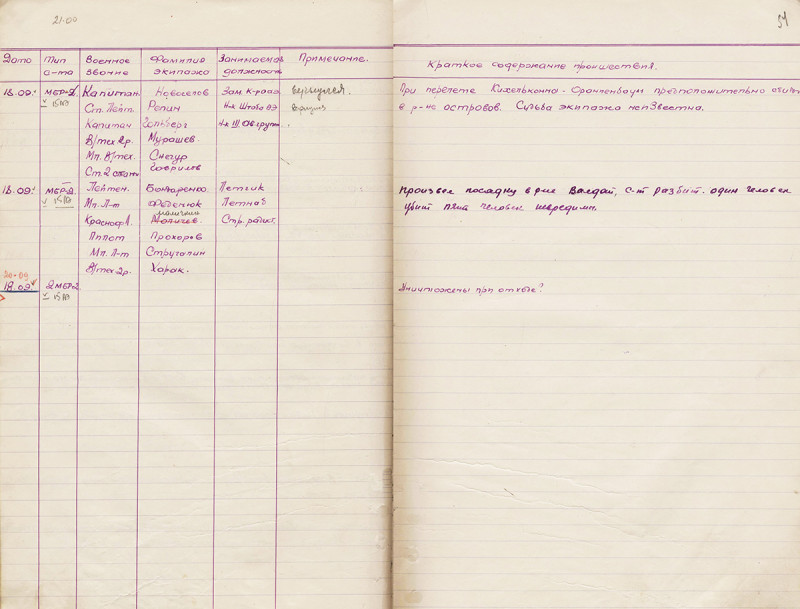 21.00
51
Дата Тип с-та Военное звание Фамилия экипажа Занимаемая должность Примечание. Краткое содержание проишествия.
18.09. МБР-2 Капитан Новоселов Зам. К-ра аэ вернулся. При перелете Кихельконна - Ораниенбаум предположительно сбит
15АЭ Ст. Лейт. Репин Н-к Штаба АЭ в р-не островов. Судьба экипажа неизвестна.
Капитан Гольберг Н-к III Ав.групп.
В/тех 2р. Мурашев.
Мл. В/тех. Снегур
Ст. 2 Гаврилов
18.09. МБР-2 Лейтен. Бондаренко. Летчик Произвел посадку в р-не Валдай, с-т разбит. один человек
15АЭ Мл. Л-т Феденюк Летнаб убит пять человек невредимы.
Краснофл. Стр. радист.
Пилот Прохоров
Мл. Л-т
В/тех 2р. Харак.
20-09
18.09. 2 МБР-2 Уничтожены при отходе?
15АЭ